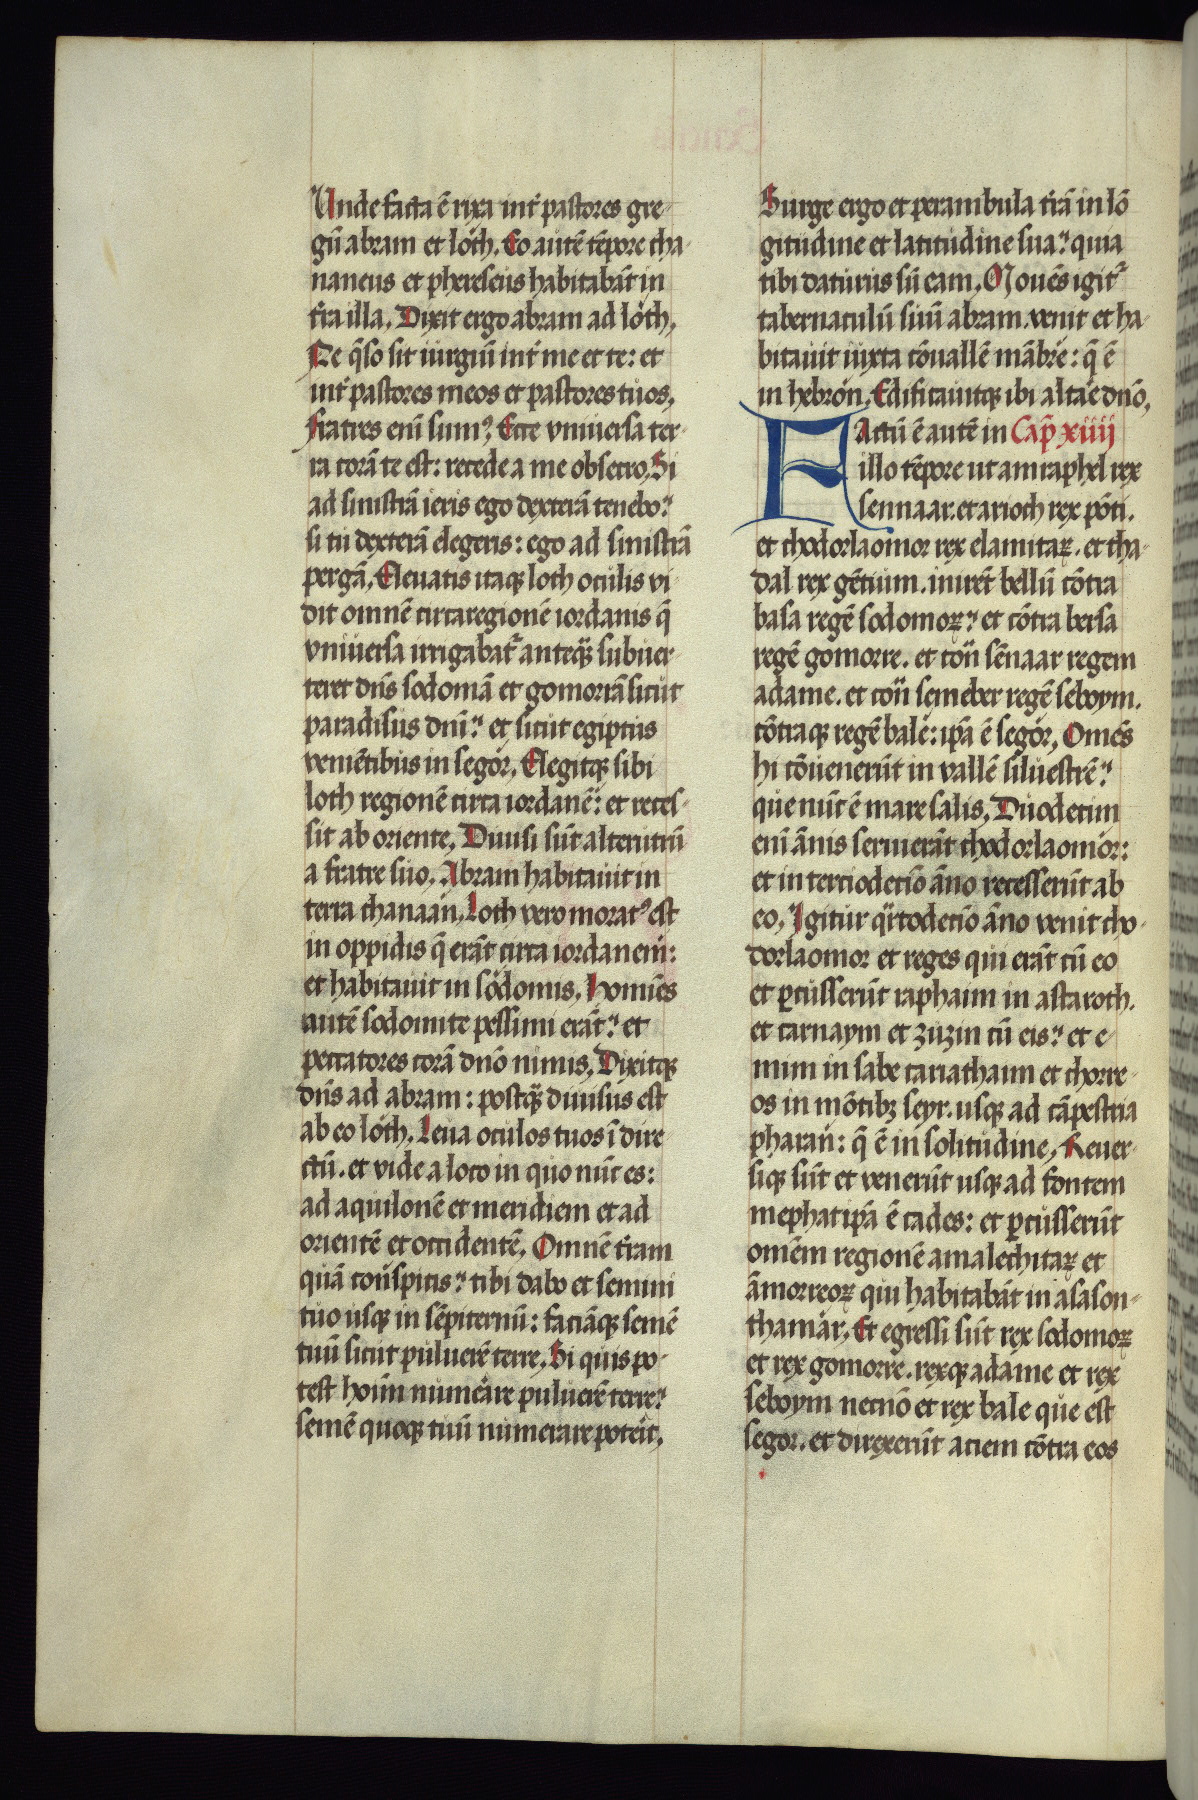 Unde facta ē rixa int̄ pastores gre-
gū abram et lóth. Eo autē tēpore cha-
naneus et phereseus habitabāt in
tr̄a illa. Dixit ergo abram ad lóth.
Ne q̄so sit iurgiū int̄ me et te: et
int̄ pastores meos et pastores tuos.
fratres eni sum⁹. Ecce vniuersa ter-
ra corā te est: recede a me obsecro. Si
ad sinistrā ieris ego dexterā tenebo:
si tu dexterā elegeris: ego ad sinistrā
pergā. Eleuatis itaqꝫ loth oculis vi-
dit omnē circa regionē iordanis q̄
vniuersa irrigabat᷑ anteqꝫ̄ subuer-
teret dn̄s sodomā et gomorrā sicut
paradisus dn̄i: et sicut egiptus
veniētibus in segór. Elegitqꝫ sibi
loth regionē circa iordanē: et reces-
sit ab oriente. Diuisi sūt alterutrū
a fratre suo. Abram habitauit in
terra chanaán. Loth vero morat⁹ est
in oppidis q̄ erāt circa iordanem:
et habitauit in sódomis. Homīes
autē sodomite pessimi erāt: et
peccatores corā dn̄o nimis. Dixitqꝫ
dn̄s ad abram: postqꝫ̄ diuisus est
ab eo lóth. Leua oculos tuos ī dire
ctū. et vide a loco in quo nūc es:
ad aquilonē et meridiem et ad
orientē et occidentē. Omnē tr̄am
quā cōspicis: tibi dabo et semini
tuo usqꝫ in sēpiternū: faciāqꝫ semē
tuū sicut puluerē terre. Si quis po-
test hoīm numerare puluerē terre:
semē quoqꝫ tuū numerare poterit.
Surge ergo et perambula tr̄am in lō
gitudine et latitudine sua: quia
tibi daturus sū eam. Mouēs igit᷑
tabernaculū suū abram. venit et ha-
bitauit iuxta cōuallē mābre: q̄ ē
in hebrón. Edificauitqꝫ ibi altare dn̄o.
FActū ē autē in Cap̄ xiiij
illo tēpore ut amraphel rex
sennaar. et arioch rex pōti.
et chodorlaomor rex elamitaꝝ. et tha-
dal rex gētium. inirēt bellū cōtra
basa regē sodomoꝝ: et cōtra bersa
regē gomorre. et cōͣ sēnaar regem
adame. et cōͣ semeber regē séboym.
cōtraqꝫ regē bale: ip̄a ē segór. Om̄es
hi cōuenerūt in vallē siluestrē:
que nūc ē mare salis. Duodecim
eni ānis seruierāt chodorlaomór:
et in terciodecīo āno recesserūt ab
eo. Igitur qͣrtodecīo āno venit cho-
dorlaomor et reges qui erāt cū eo
et ꝑcusserūt raphaim in astaroth.
et carnaym et zuzin cū eis: et e-
mim in sabe cariathaim et chorre-
os in mōtibꝫ seyr. usqꝫ ad cāpestria
pharan: q̄ ē in solitudine. Reuer-
siqꝫ sūt et venerūt usqꝫ ad fontem
mesphat ip̄a ē cades: et ꝑcusserūt
omēm regionē amalechitaꝝ et
āmorreoꝝ qui habitabāt in asason-
thamár. Et egressi sūt rex sodomoꝝ
et rex gomorre. rexqꝫ adame et rex
seboym necnō et rex bale que est
segor. et direxerūt aciem cōtra eos